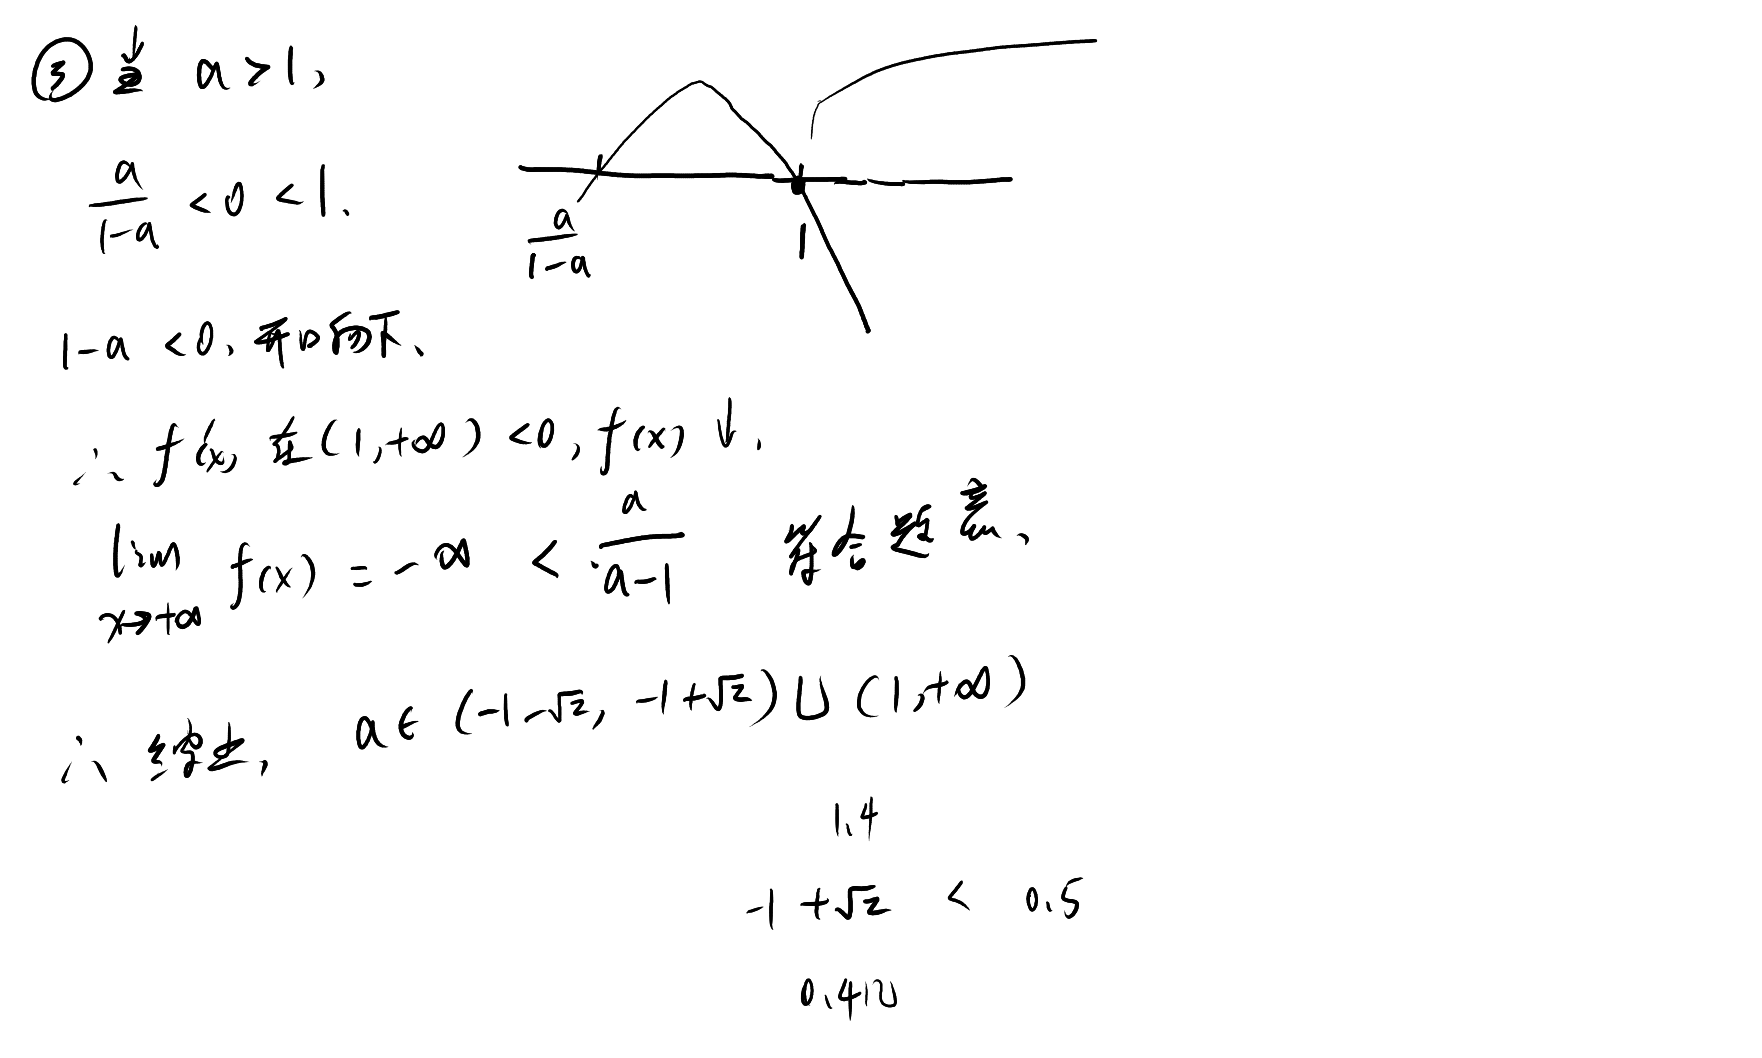 ③ 当 a>1,
a/(1-a) <0 <1.
a/(1-a)
1
1-a <0, 开口向下、
∴ f'(x) 在(1,+∞) <0, f(x) ↓.
lim x→+∞ f(x) = -∞ < a/(a-1) 符合题意、
∴ 综上, a∈ (-1-√2, -1+√2) ∪ (1,+∞)
1.4
-1 +√2 < 0.5